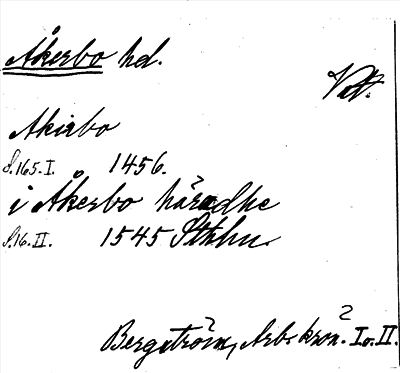 Åkerbo hd.
Vstm.
Akirbo
S.165.I. 1456.
i Åkerbo häradhe
S.16.II. 1545 Sthlm.
Bergström, Arb. krön. I o. II.